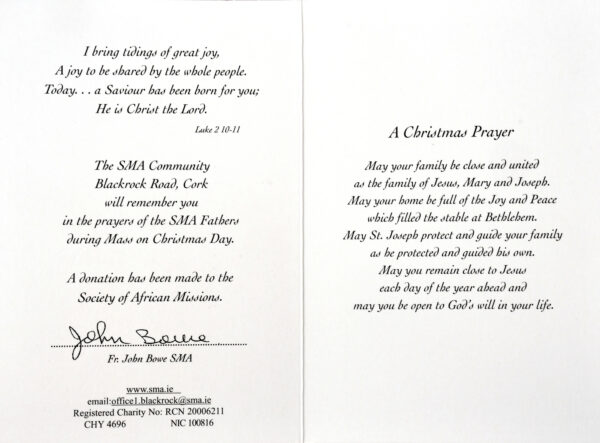 I bring tidings of great joy,
A joy to be shared by the whole people.
Today. . . a Saviour has been born for you;
He is Christ the Lord.
Luke 2 10-11
The SMA Community
Blackrock Road, Cork
will remember you
in the prayers of the SMA Fathers
during Mass on Christmas Day.
A donation has been made to the
Society of African Missions.
John Bowe
Fr. John Bowe SMA
www.sma.ie
email:office1.blackrock@sma.ie
Registered Charity No: RCN 20006211
CHY 4696 NIC 100816
A Christmas Prayer
May your family be close and united
as the family of Jesus, Mary and Joseph.
May your home be full of the Joy and Peace
which filled the stable at Bethlehem.
May St. Joseph protect and guide your family
as he protected and guided his own.
May you remain close to Jesus
each day of the year ahead and
may you be open to God's will in your life.